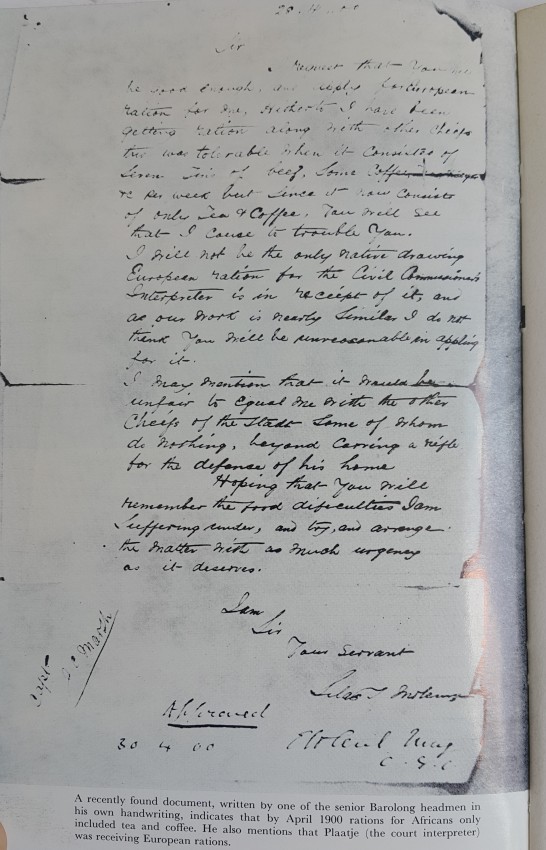 28.4.00
Sir
request that You will
be good enough, and apply for European
ration for me, I have been
getting ration along with other Chiefs
this was tolerable when it consisted of
Seven tins of beef, Some Coffee
&c per week but since it now consists
of only Tea & Coffee. You will see
that I cause to trouble You.
I will not be the only native drawing
European ration for the Civil Commissioner's
Interpreter is in receipt of it, and
as our work is nearly Similar I do not
think You will be unreasonable in applying
for it.
I may mention that it would be
unfair to equal me with the other
Chiefs of the Stadt Some of whom
do nothing, beyond carring a rifle
for the defense of his home
Hoping that You will
remember the food dificulties I am
Suffering under, and try, and arrange
the matter with as much urgency
as it deserves.
I am
Sir
Your Servant
Silas T Molema
Capt
Marsh
Approved
30 4 00
C.S.O
A recently found document, written by one of the senior Barolong headmen in
his own handwriting, indicates that by April 1900 rations for Africans only
included tea and coffee. He also mentions that Plaatje (the court interpreter)
was receiving European rations.